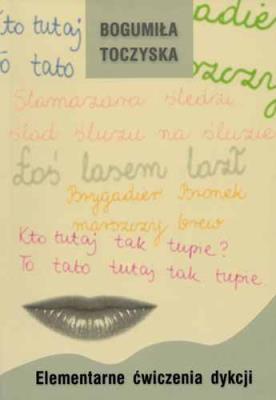 Kto tutaj
To tato
BOGUMIŁA
TOCZYSKA
Ślamazara śledzi
ślad śluzu na śluzie
Łoś lasem lazł
Brygadier Bronek
marszczy brew
Kto tutaj tak tupie?
To tato tutaj tak tupie
Elementarne ćwiczenia dykcji